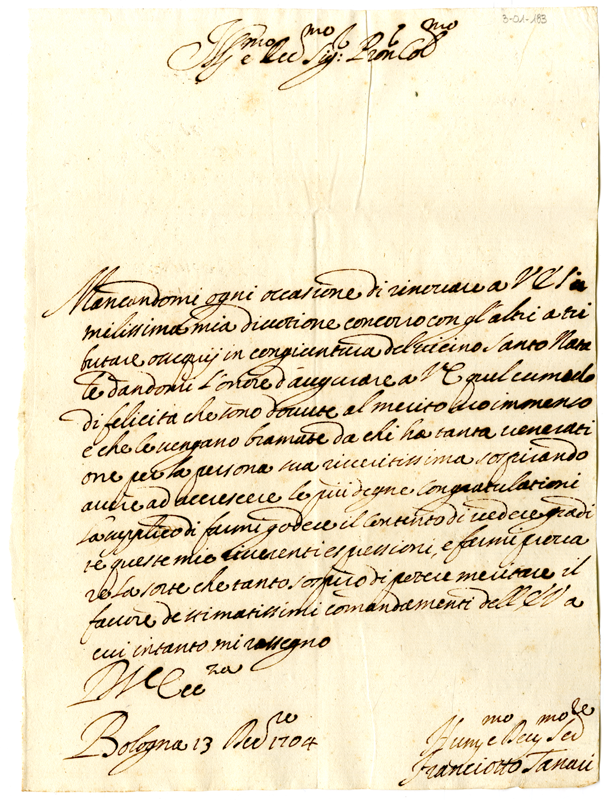 3-01-183
Ill^mo e Ecc^mo Sig: Pron Col^mo
Mancandomi ogni occasione di rinovare a V E l'u
milissima mia divotione concorro con gl'altri a tri
butare ossequij in congiuntura del vicino Santo Nata
le dandomi l'onore d'augurare a V E quel cumolo
di felicita che sono dovute al merito suo immenso
e che le vengano bramate da chi ha tanta venerati
one per la persona sua riveritissima sospirando
avere ad accrescere le più degne congratulationi
la supplico di farmi godere il contento di vedere gradi
te queste mie riverenti espressioni, e farmi
re la sorte che tanto sospiro di potere meritare il
favore de stimatissimi comandamenti dell'E V a
cui intanto mi rassegno
D V E Ecc^za
Bologna 13 Dec^re 1704
Hum^mo e Dev^mo Se^re
Franciotto Tanari